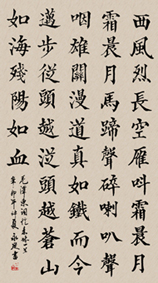 西風烈長空雁叫霜晨月
霜晨月馬蹄聲碎喇叭聲
咽雄關漫道真如鐵而今
邁步從頭越從頭越蒼山
如海殘陽如血
毛澤東詞